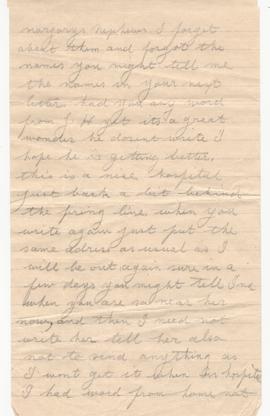 margarys nephews I forget
about them and forgot the
names you might tell me
the names in your next
letter. had you any word
from J. H yet its a great
wonder he dosent write I
hope he is getting better.
this is a nice hospital
just back a bit behind
the firing line. when you
write again just put the
same adress as usual as I
will be out again sure in a
few days you might tell
when you are so near her
now, and then I need not
write her tell her also
not to send anything as
I wont get it when in hospital
I had word from home not